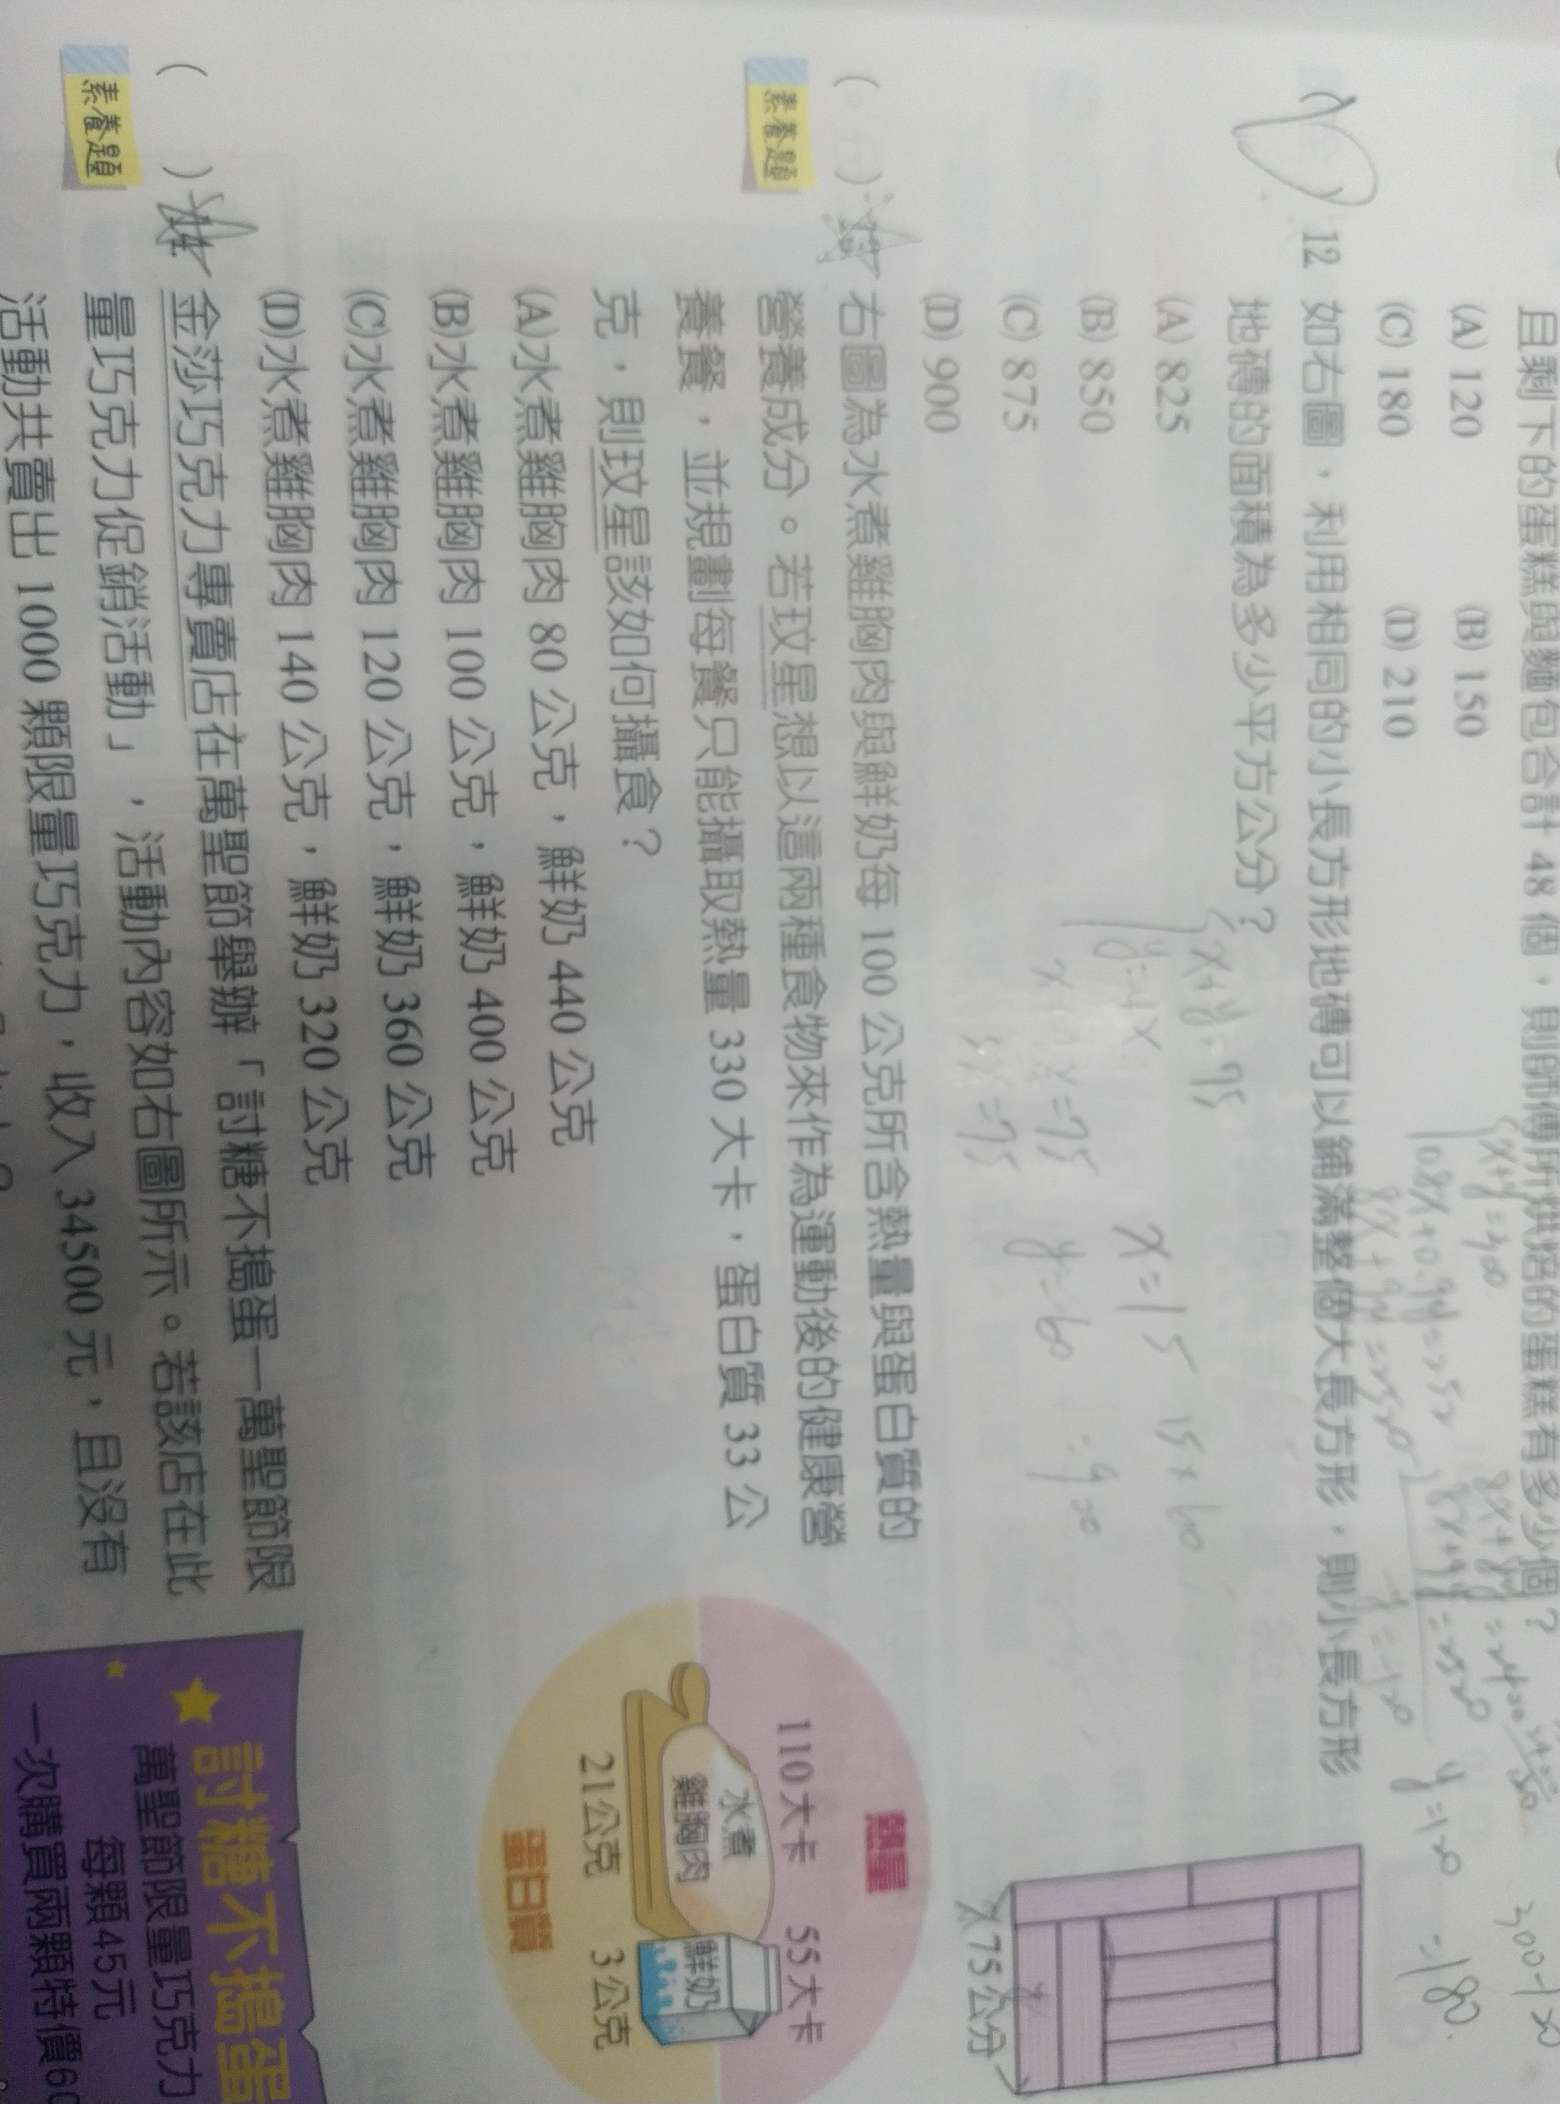 且剩下的蛋糕與麵包合計 48 個，則師傅所烘焙的蛋糕有多少個？
(A) 120 (B) 150
(C) 180 (D) 210
x+y=300
0.8x+0.9y=252
8x+9y=2520
8x+8y=2400
8x+9y=2520
-y=-120
y=120
=180.
300-120
12 如右圖，利用相同的小長方形地磚可以鋪滿整個大長方形，則小長方形
地磚的面積為多少平方公分？
(A) 825
(B) 850
(C) 875
(D) 900
x+y=75
y=4x
x+4x=75
5x=75
x=15
y=60
15×60
=900
75公分
右圖為水煮雞胸肉與鮮奶每 100 公克所含熱量與蛋白質的
營養成分。若玟星想以這兩種食物來作為運動後的健康營
養餐，並規劃每餐只能攝取熱量 330 大卡，蛋白質 33 公
克，則玟星該如何攝食？
(A)水煮雞胸肉 80 公克，鮮奶 440 公克
(B)水煮雞胸肉 100 公克，鮮奶 400 公克
(C)水煮雞胸肉 120 公克，鮮奶 360 公克
(D)水煮雞胸肉 140 公克，鮮奶 320 公克
素養題
熱量
110大卡 55大卡
水煮
雞胸肉
鮮奶
21公克 3公克
蛋白質
金莎巧克力專賣店在萬聖節舉辦「討糖不搗蛋—萬聖節限
量巧克力促銷活動」，活動內容如右圖所示。若該店在此
活動共賣出 1000 顆限量巧克力，收入 34500 元，且沒有
素養題
討糖不搗蛋
萬聖節限量巧克力
每顆45元
一次購買兩顆特價60